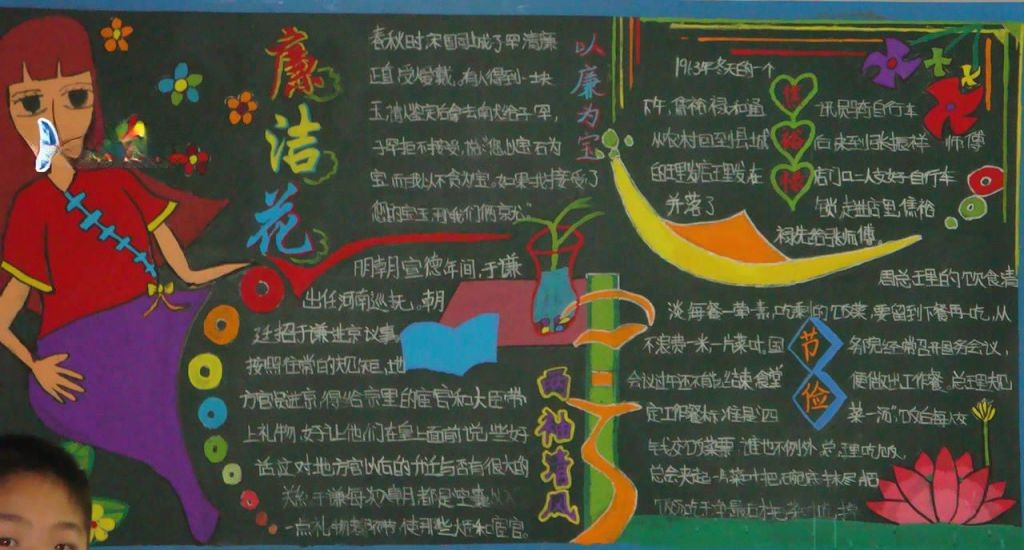 廉洁花
以廉为宝
春秋时,宋国司城子罕清廉
正直受爱戴。有人得到一块
玉,请人鉴定后拿去献给子罕,
子罕拒不接受,说:您以宝石为
宝,而我以不贪为宝。如果我接受了
您的宝玉
明朝宣德年间,于谦
出任河南巡抚。朝
廷招于谦进京议事。
按照往常的规矩,地
方官员进京,得给京里的官和大臣带
上礼物,好让他们在皇上面前说些好
话,这对地方官以后的升迁与否有很大的
关系,于谦每次朝见都是空囊
一点礼物
两袖清风
焦裕禄
1963年冬天的一个
下午,焦裕禄和通讯员骑自行车
从农村回到县城后来到张振祥师傅
的理发店里理发在店门口一人支好自行车
并落了锁,走进店里焦裕
禄先给张师傅
节俭
周总理的饮食清
淡,每餐一荤一素,吃剩的饭菜,要留到下餐再吃,从
不浪费一米一片菜叶。国务院经常召开国务会议,
会议过午还不能结束食堂便做出工作餐。总理规
定工作餐标准是“四菜一汤”,饭后每人交
钱交饭菜票,谁也不例外。总理吃饭,
总会夹起一片菜叶把碗底抹